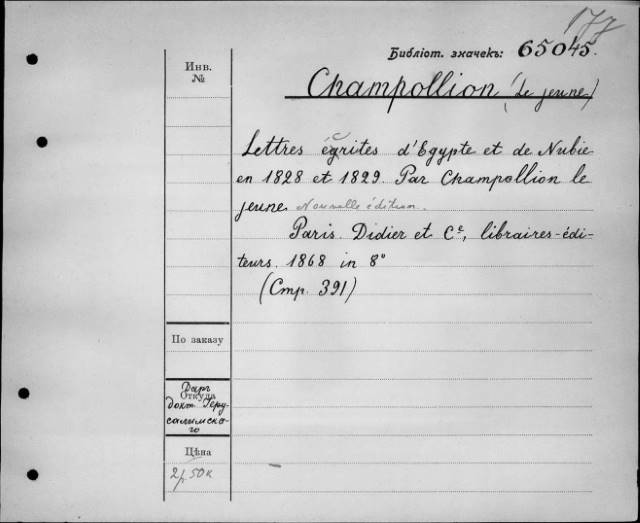 177
Библіот. значекъ: 65045.
Инв.
№
Champollion (Le jeune)
Lettres écrites d'Egypte et de Nubie
en 1828 et 1829. Par Champollion le
jeune Nouvelle édition.
Paris. Didier et Cᵉ, libraires-édi-
teurs. 1868 in 8°
(Стр. 391)
По заказу
Откуда
Даръ
докт. Іеру-
салимска-
го
Цѣна
2 р. 50 к